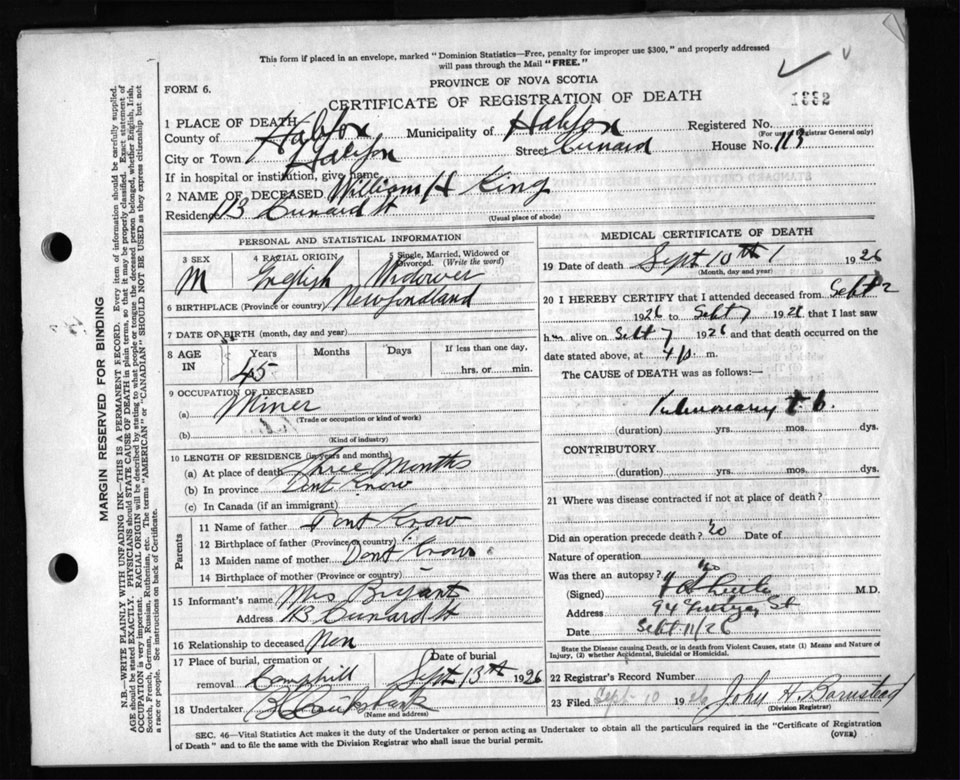 This form if placed in an envelope, marked "Dominion Statistics—Free, penalty for improper use $300," and properly addressed
will pass through the Mail "FREE."
PROVINCE OF NOVA SCOTIA
FORM 6.
CERTIFICATE OF REGISTRATION OF DEATH
1882
1 PLACE OF DEATH
County of Halifax Municipality of Halifax Registered No.
(For use of Registrar General only)
City or Town Halifax Street Cunard House No. 113
If in hospital or institution, give name
2 NAME OF DECEASED William H King
Residence 113 Cunard St
(Usual place of abode)
PERSONAL AND STATISTICAL INFORMATION
3 SEX M
4 RACIAL ORIGIN English
5 Single, Married, Widowed or Divorced. (Write the word) Widower
6 BIRTHPLACE (Province or country) Newfondland
7 DATE OF BIRTH (month, day and year)
8 AGE IN Years Months Days If less than one day.
45 hrs. or min.
9 OCCUPATION OF DECEASED
(a) Miner
(Trade or occupation or kind of work)
(b)
(Kind of industry)
10 LENGTH OF RESIDENCE (in years and months)
(a) At place of death Three Months
(b) In province Dont Know
(c) In Canada (if an immigrant)
Parents
11 Name of father Dont Know
12 Birthplace of father (Province or country)
13 Maiden name of mother Dont Know
14 Birthplace of mother (Province or country)
15 Informant's name Mrs Bryant
Address 113 Cunard St
16 Relationship to deceased Non
17 Place of burial, cremation or removal Camphill
Date of burial Sept 13th 1926
18 Undertaker
(Name and address)
MEDICAL CERTIFICATE OF DEATH
19 Date of death Sept 10th 1926
(Month, day and year)
20 I HEREBY CERTIFY that I attended deceased from Sept 2
1926 to Sept 7 1926 that I last saw
him alive on Sept 7 1926 and that death occurred on
date stated above, at 4 p. m.
The CAUSE of DEATH was as follows:—
Pulmonary T. B.
(duration) yrs. mos. dys.
CONTRIBUTORY
(duration) yrs. mos. dys.
21 Where was disease contracted if not at place of death?
Did an operation precede death? no Date of
Nature of operation
Was there an autopsy? no
(Signed) M.D.
Address 94 St
Date Sept 11/26
State the Disease causing Death, or in death from Violent Causes, state (1) Means and Nature of
Injury, (2) whether Accidental, Suicidal or Homicidal.
22 Registrar's Record Number
23 Filed Sept 10 1926 John H Barnstead
(Division Registrar)
SEC. 46—Vital Statistics Act makes it the duty of the Undertaker or person acting as Undertaker to obtain all the particulars required in the "Certificate of Registration
of Death" and to file the same with the Division Registrar who shall issue the burial permit.
(OVER)
MARGIN RESERVED FOR BINDING
N.B.—WRITE PLAINLY WITH UNFADING INK—THIS IS A PERMANENT RECORD. Every item of information should be carefully supplied.
AGE should be stated EXACTLY. PHYSICIANS should STATE CAUSE OF DEATH in plain terms, so that it may be properly classified. Exact statement of
OCCUPATION is very important. RACIAL ORIGIN will be described by stating to what people or tongue the deceased person belonged, whether English, Irish,
Scotch, French, German, Russian, Ruthenian, etc. The terms "AMERICAN" or "CANADIAN" SHOULD NOT BE USED as they express citizenship but not
a race or people. See instructions on back of Certificate.